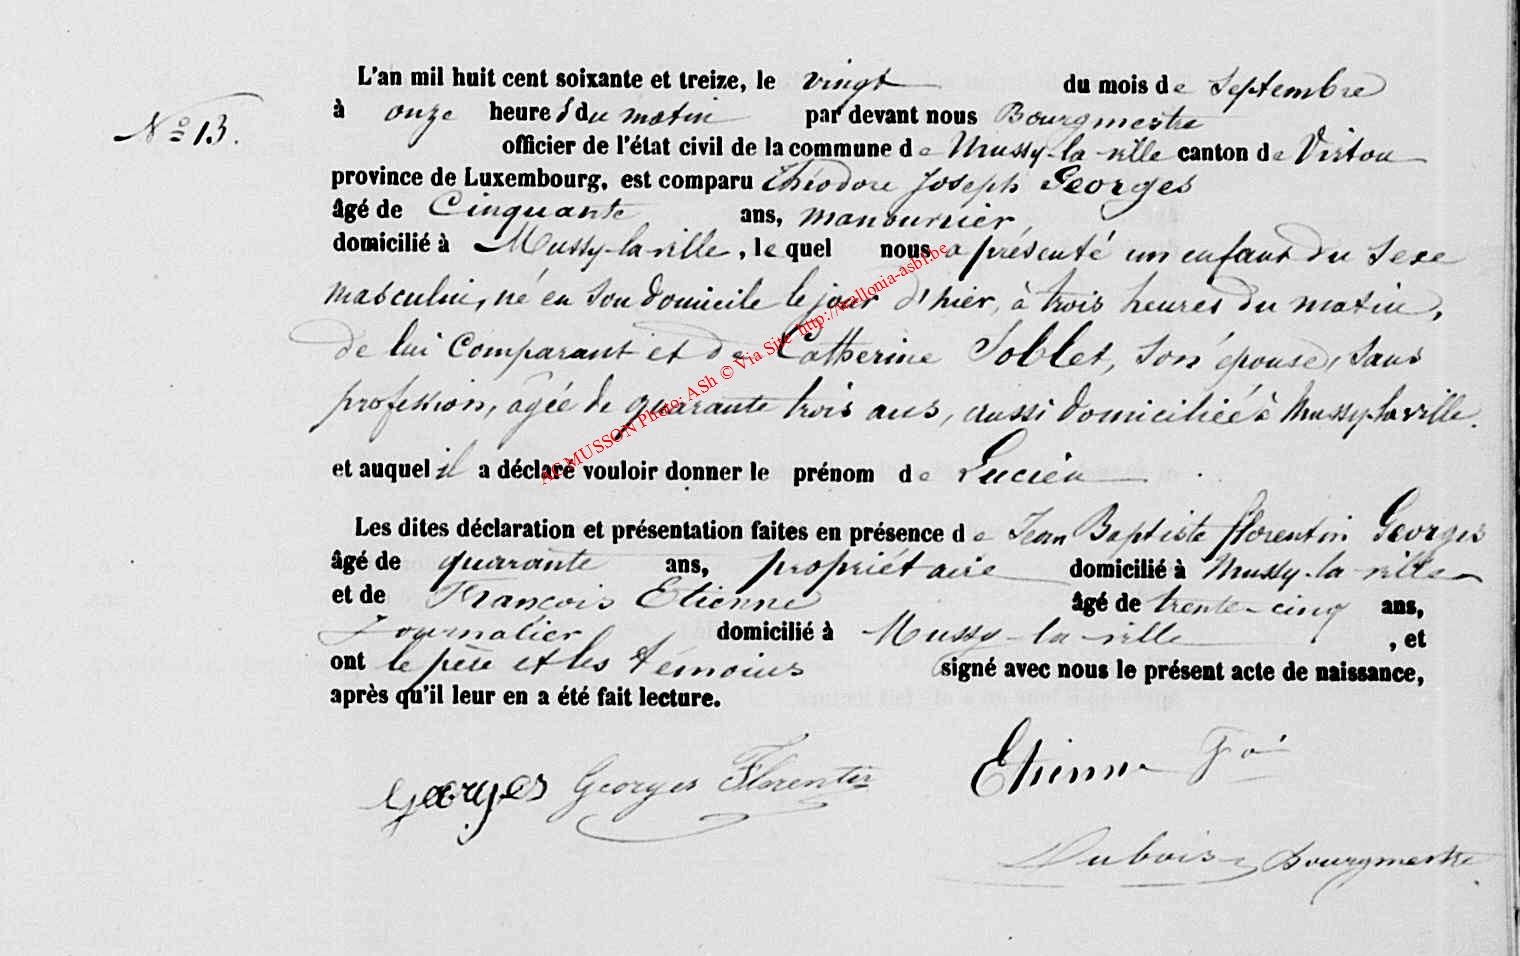 L'an mil huit cent soixante et treize, le vingt du mois de Septembre
à onze heures du matin par devant nous Bourgmestre
N° 13.
officier de l'état civil de la commune de Mussy-la-ville canton de Virton
province de Luxembourg, est comparu Théodore Joseph Georges
âgé de Cinquante ans, manouvrier,
domicilié à Mussy-la-ville, lequel nous a présenté un enfant du sexe
masculin, né en son domicile le jour d'hier, à trois heures du matin,
de lui Comparant et de Catherine Soblet, son épouse, sans
profession, âgée de quarante trois ans, aussi domiciliée à Mussy-la-ville.
et auquel il a déclaré vouloir donner le prénom de Lucien
Les dites déclaration et présentation faites en présence de Jean Baptiste florentin Georges
âgé de quarante ans, propriétaire domicilié à Mussy-la-ville
et de François Etienne âgé de trente-cinq ans,
Journalier domicilié à Mussy-la-ville, et
ont le père et les témoins signé avec nous le présent acte de naissance,
après qu'il leur en a été fait lecture.
Georges Georges Florentin Etienne Fois
Dubois Bourgmestre
AC MUSSON Photo: ASh © Via Site http://wallonia-asbl.be